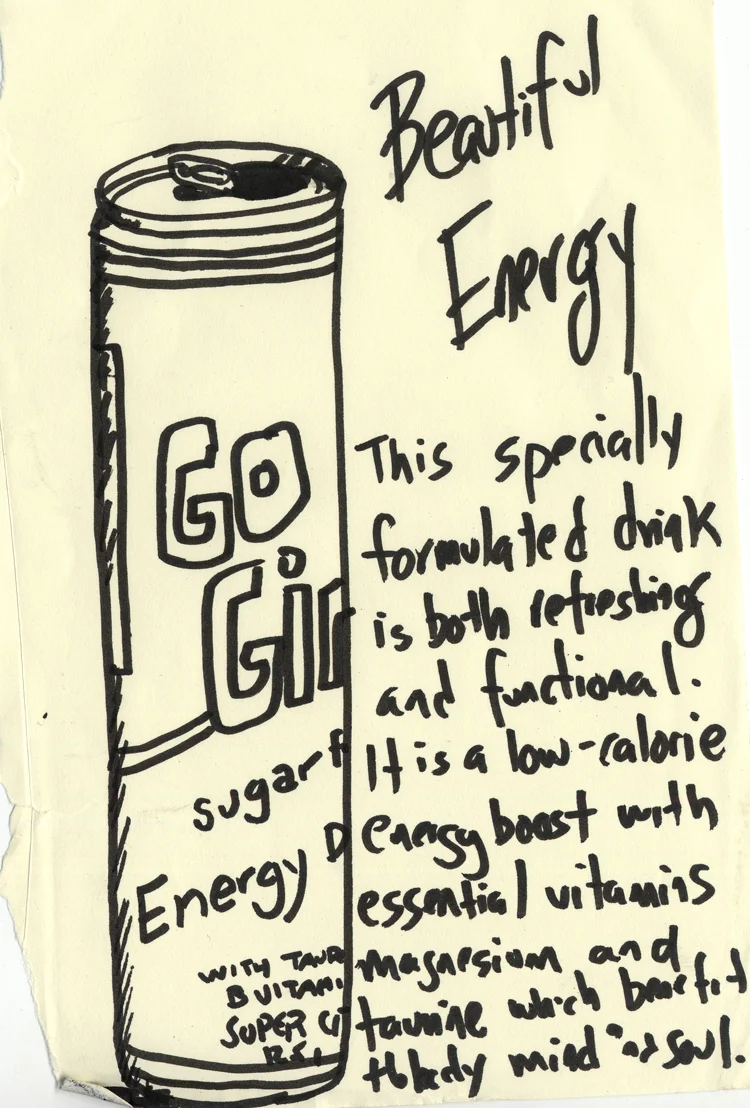 Beautiful
Energy
GO
Gir
sugar f
Energy D
WITH TAUR
B VITAMI
SUPER Ci
12.5
This specially
formulated drink
is both refreshing
and functional.
It is a low-calorie
energy boost with
essential vitamins
magnesium and
taurine which benefit
body mind and soul.